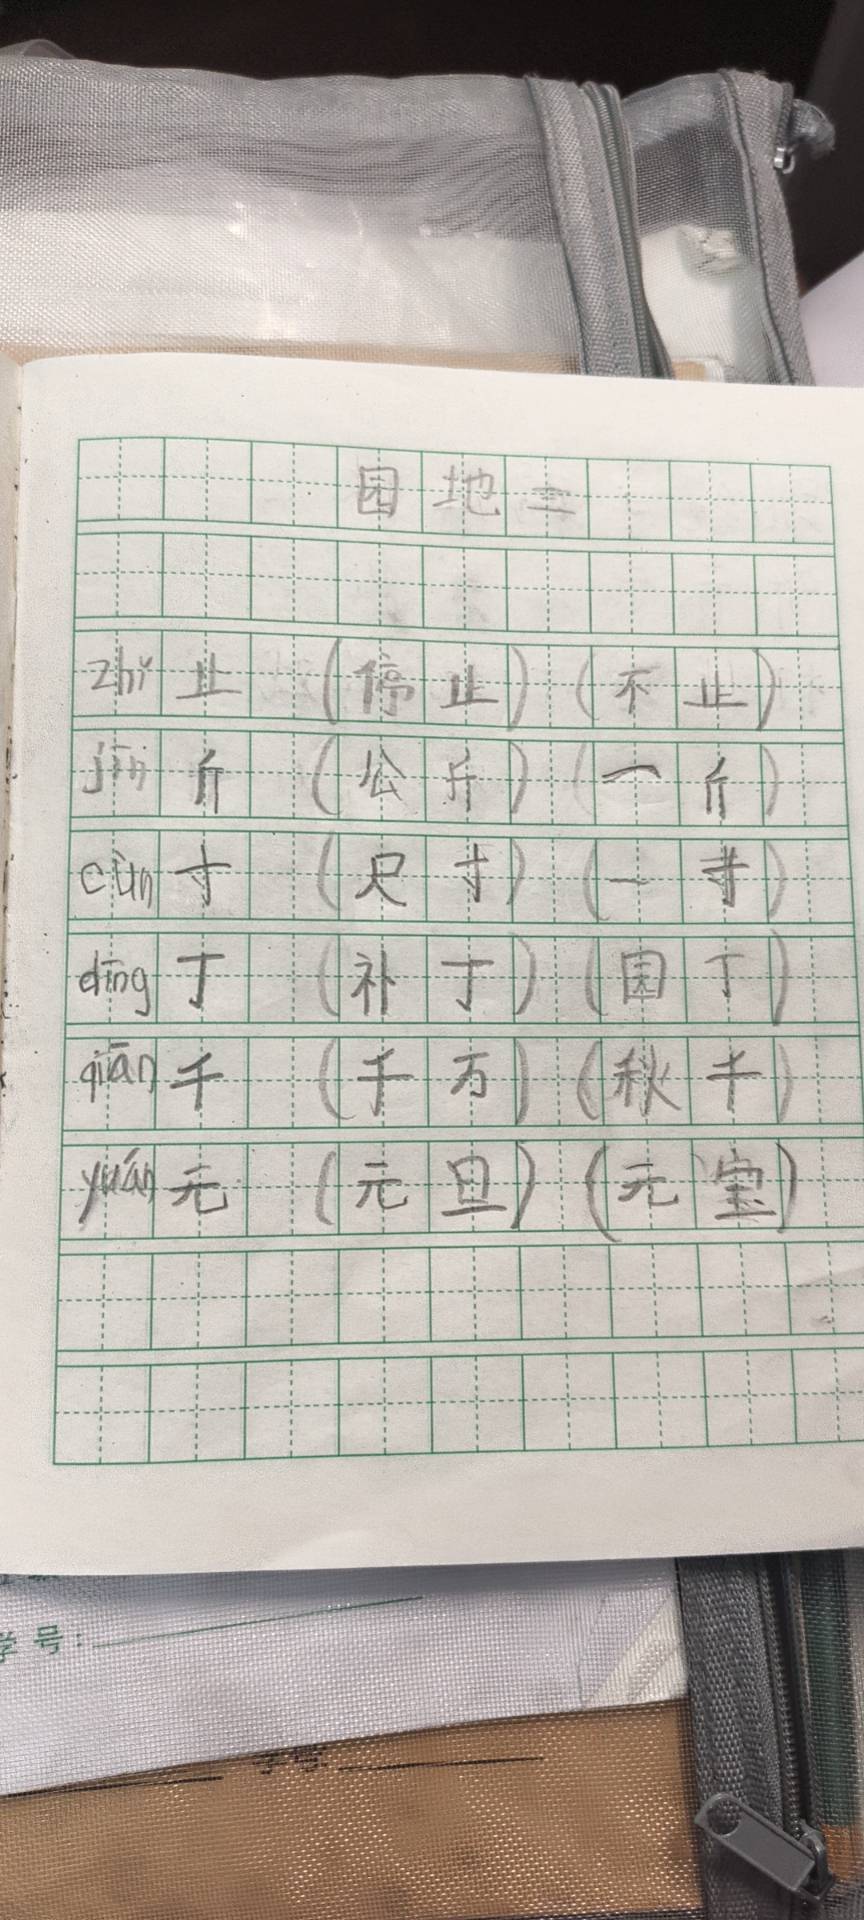 园地二
zhǐ 止 (停止) (不止)
jīn 斤 (公斤) (一斤)
cùn 寸 (尺寸) (一寸)
dīng 丁 (补丁) (园丁)
qiān 千 (千万) (秋千)
yuán 元 (元旦) (元宝)
学号:
学号: